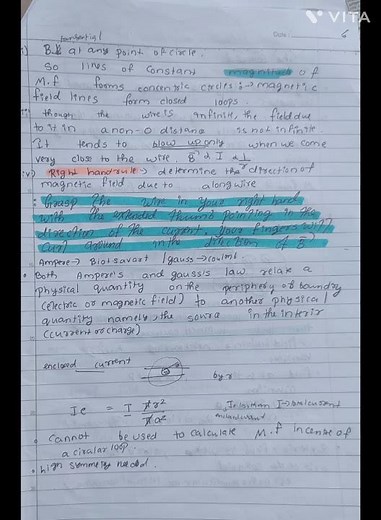 VITA
tangential
Date: 6
i) B.B at any point of circle.
So lines of constant magnitude of
M.f forms concentric circles :→ magnetic
field lines form closed loops.
though the wire is infinite, the field due
to it in a non-0 distance is not infinite
It tends to blow up only when we come
very close to the wire. B ∝ I ∝ 1/r
iv) Right hand rule → determine the direction of
magnetic field due to a long wire
: Grasp the wire in your right hand
with the extended thumb pointing in the
direction of the current. Your fingers will
curl around in the direction of B
Ampere → Biot savart / gauss → coulomb
• Both Ampere's and gauss's law relax a
physical quantity on the periphery or boundry
(electric or magnetic field) to another physical
quantity namely, the source in the interir
(current or charge)
enclosed current
by r
Ie = I πr² / πa²
Ie less than I → total current
enclosed current
• Cannot be used to calculate M.f in case of
a cirular loop.
• high symmetry needed.